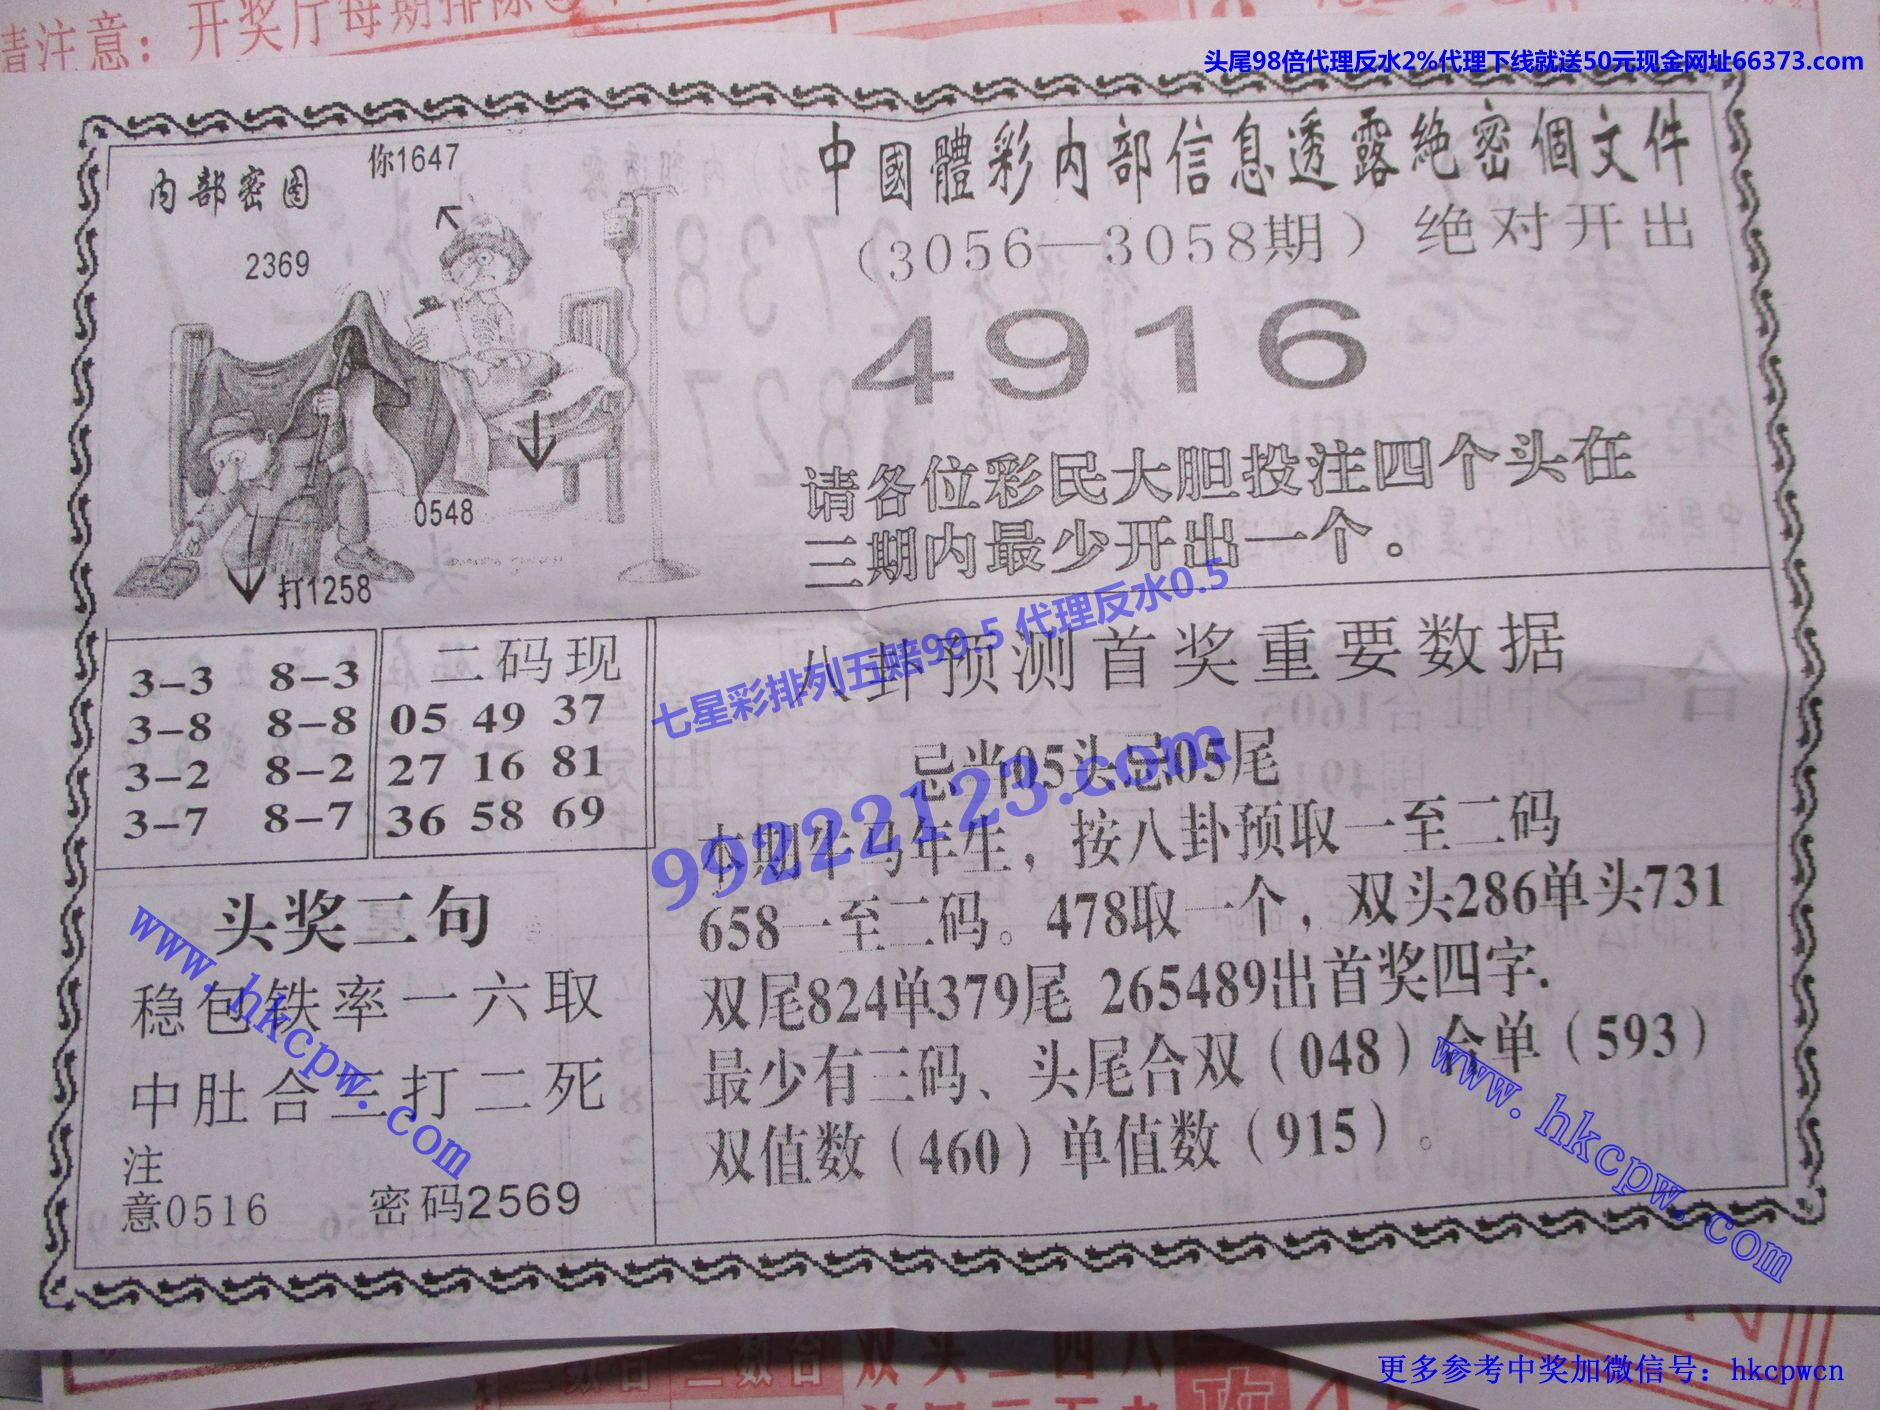 请注意：开奖厅每期排除
头尾98倍代理反水2%代理下线就送50元现金网址66373.com
内部密图
你1647
2369
0548
打1258
中國體彩内部信息透露絶密個文件
（3056—3058期）绝对开出
4916
请各位彩民大胆投注四个头在
三期内最少开出一个。
3-3 8-3
3-8 8-8
3-2 8-2
3-7 8-7
二码现
05 49 37
27 16 81
36 58 69
七星彩排列五赔99.5 代理反水0.5
八卦预测首奖重要数据
忌当05头忌05尾
99222123.com
本期牛马年生，按八卦预取一至二码
658一至二码。478取一个，双头286单头731
双尾824单379尾 265489出首奖四字.
最少有三码、头尾合双（048）合单（593）
双值数（460）单值数（915）。
头奖二句
稳包铁率一六取
中肚合三打二死
注
意0516 密码2569
www.hkcpw.com
www.hkcpw.com
双头二四八
更多参考中奖加微信号：hkcpwcn